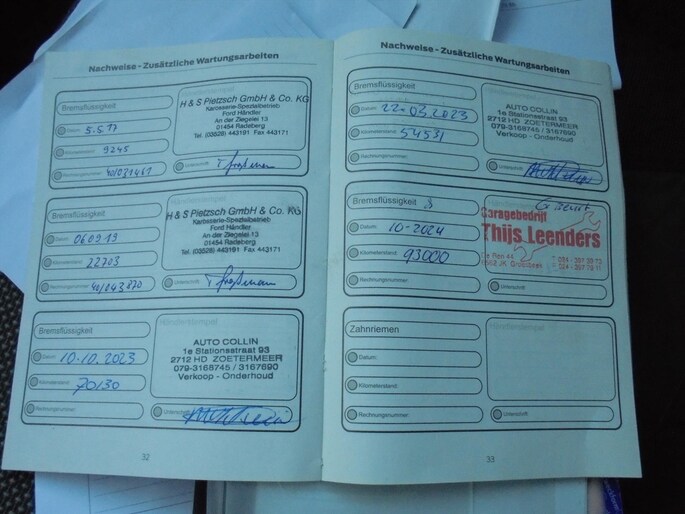 Nachweise - Zusätzliche Wartungsarbeiten
Bremsflüssigkeit
Datum: 5.5.17
Kilometerstand: 9245
Rechnungsnummer: 40/021461
H & S Pietzsch GmbH & Co. KG
Karosserie-Spezialbetrieb
Ford Händler
An der Ziegelei 13
01454 Radeberg
Tel. (03528) 443191 Fax 443171
Unterschrift:
Bremsflüssigkeit
Datum: 06.09.19
Kilometerstand: 22703
Rechnungsnummer: 40/043870
H & S Pietzsch GmbH & Co. KG
Karosserie-Spezialbetrieb
Ford Händler
An der Ziegelei 13
01454 Radeberg
Tel. (03528) 443191 Fax 443171
Unterschrift:
Bremsflüssigkeit
Datum: 10-10.2023
Kilometerstand: 70130
Rechnungsnummer:
Händlerstempel
AUTO COLLIN
1e Stationsstraat 93
2712 HD ZOETERMEER
079-3168745 / 3167690
Verkoop - Onderhoud
Unterschrift:
32
Nachweise - Zusätzliche Wartungsarbeiten
Bremsflüssigkeit
Datum: 22-03-2023
Kilometerstand: 54531
Rechnungsnummer:
AUTO COLLIN
1e Stationsstraat 93
2712 HD ZOETERMEER
079-3168745 / 3167690
Verkoop - Onderhoud
Unterschrift:
Bremsflüssigkeit 3
Datum: 10-2024
Kilometerstand: 93000
Rechnungsnummer:
Garagebedrijf
Thijs Leenders
Unterschrift:
Zahnriemen
Datum:
Kilometerstand:
Rechnungsnummer:
Händlerstempel
Unterschrift:
33